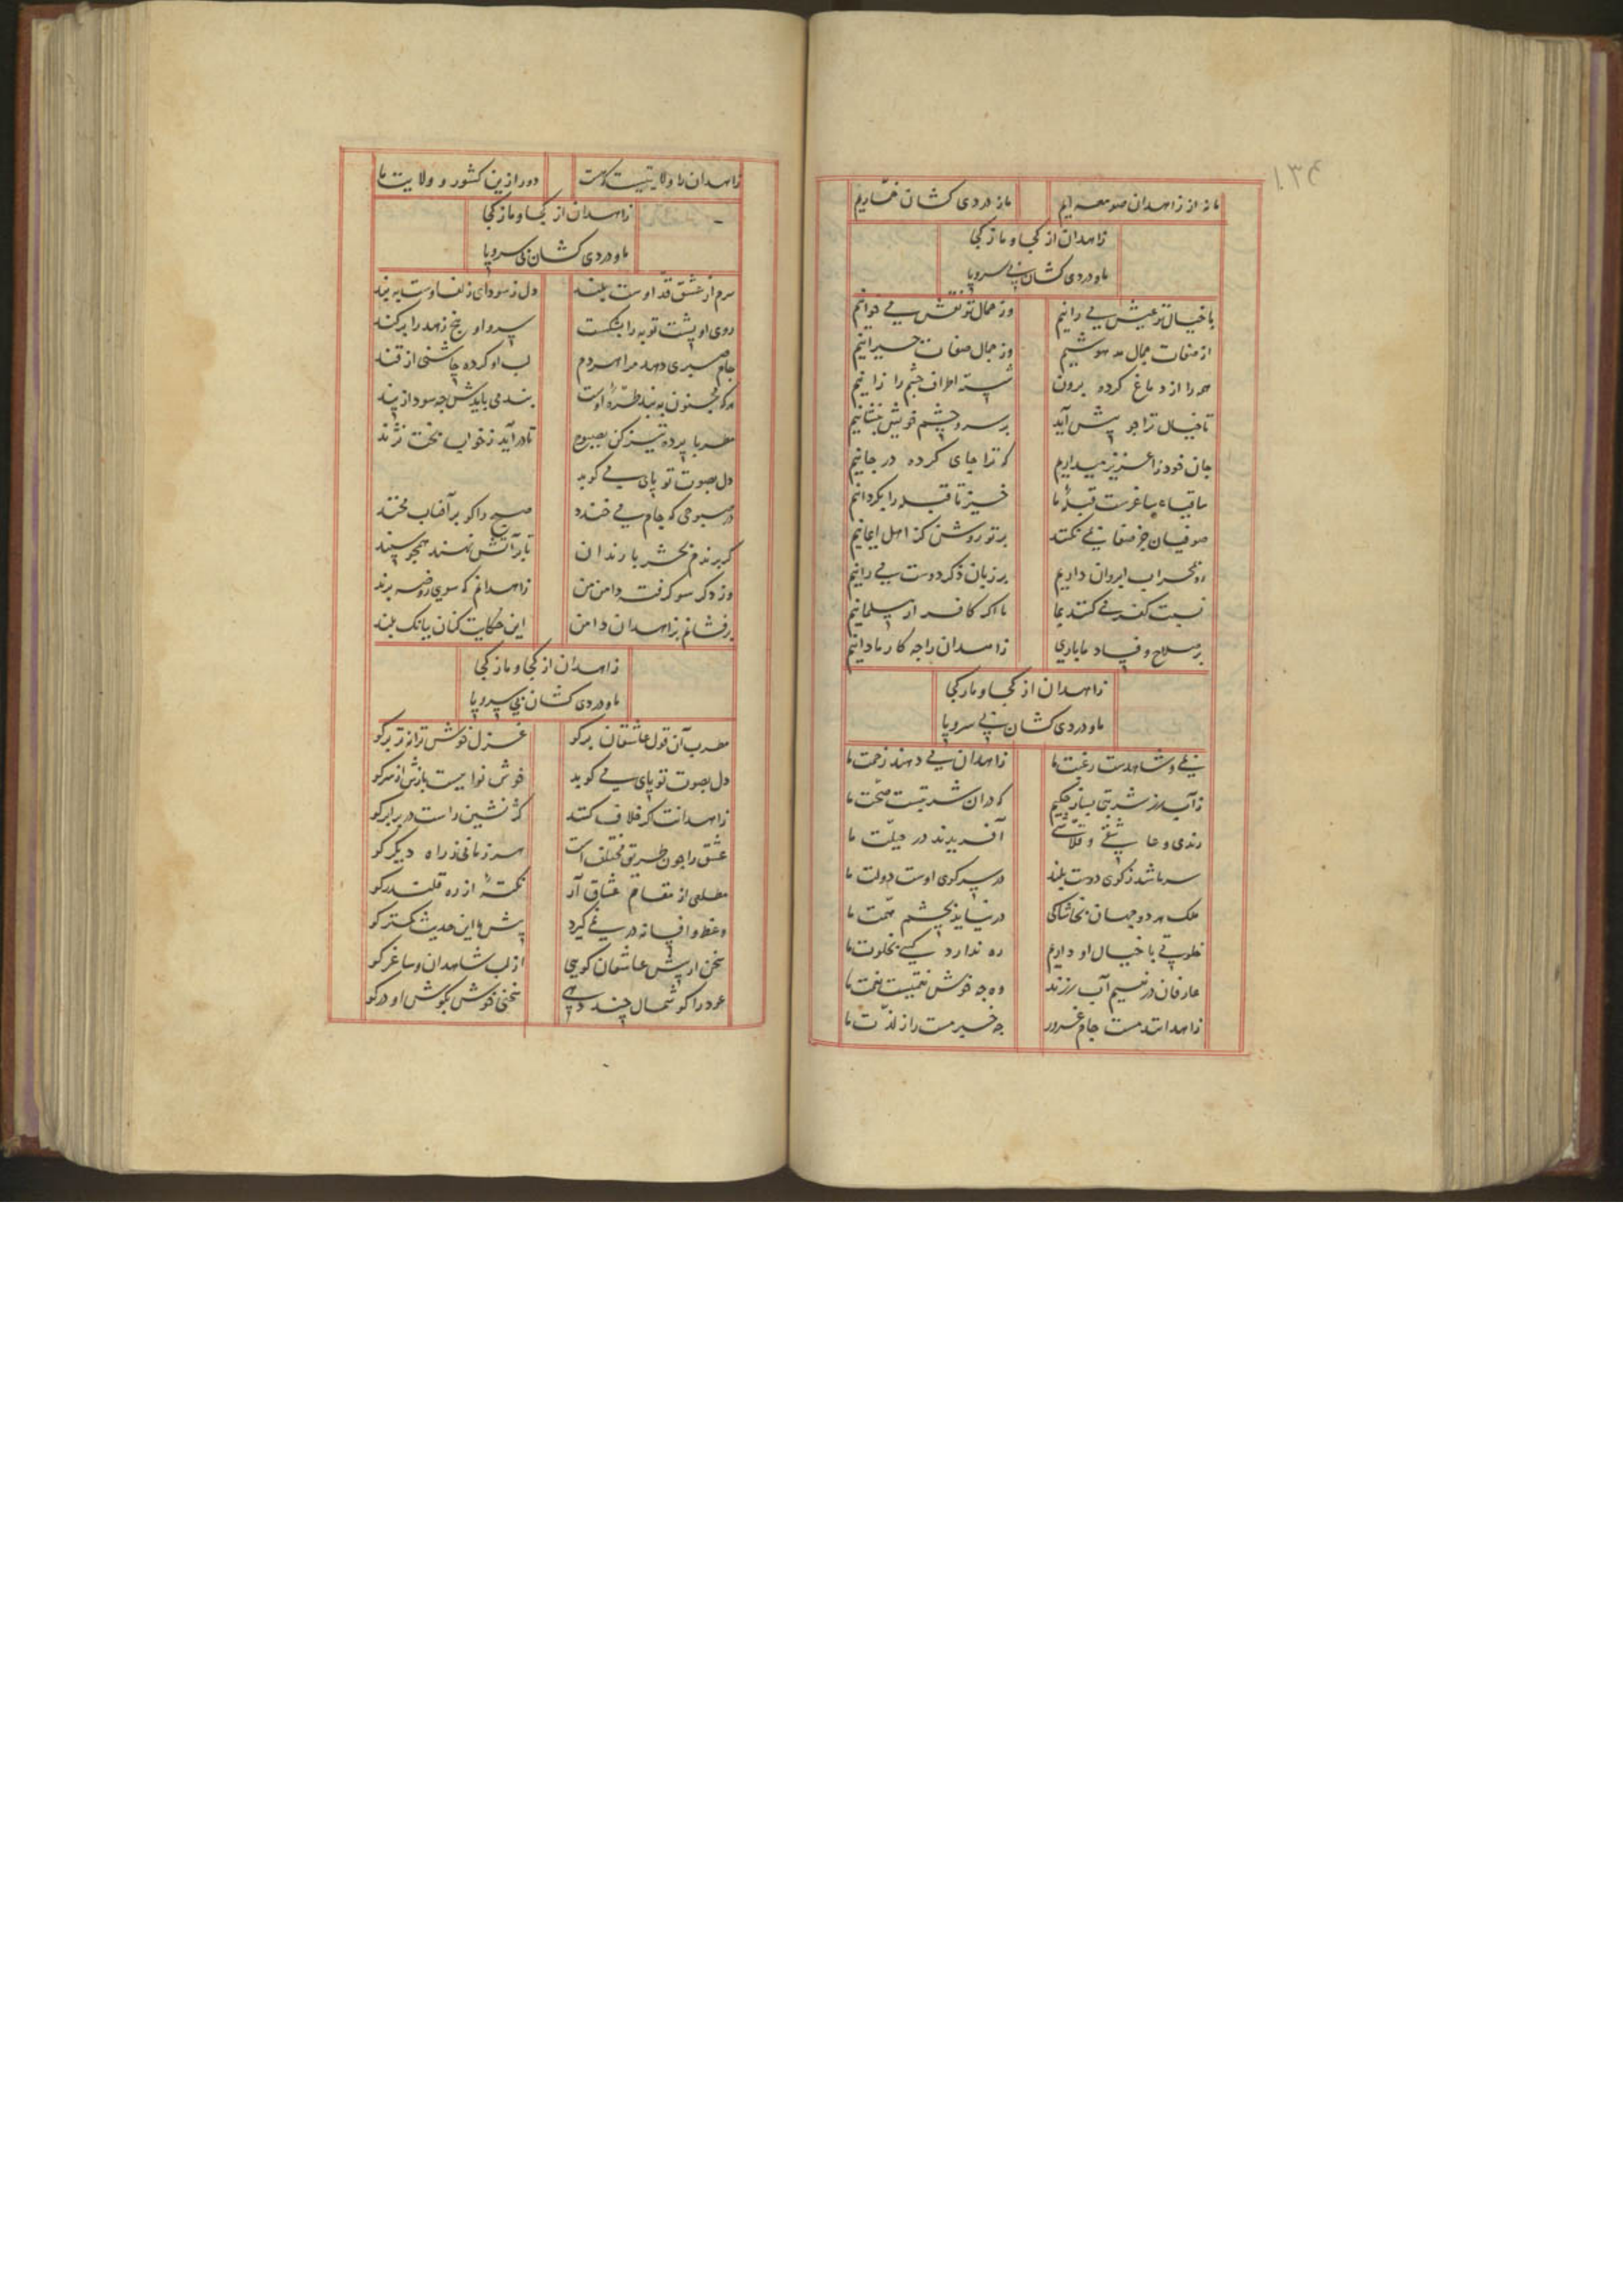 ۱۳۴
ما نه از زاهدان صومعه ایم ما ز دردی کشان خماریم
زاهدان از کجا و ما ز کجا
ما و دردی کشان بی سر و پا
با خیال تو عیش می رانیم وز جمال تو نقش می خوانیم
از صفات جمال مدهوشیم وز جمال صفات حیرانیم
همه را از دماغ کرده برون شسته اطراف چشم را زانیم
تا خیال ترا چو پیش آید بر سر و چشم خویش بنشانیم
جان خود را عزیز میداریم که ترا جای کرده در جانیم
ساقیا ساغرست قبله ما خیز تا قبله را بگردانیم
صوفیان جز صفا نمی نکنند بر تو روشن کز اهل ایمانیم
رو بمحراب ابروان داریم بر زبان ذکر دوست می رانیم
نسبت کفر می کنند بما ما اگر کافر ار مسلمانیم
بر صلاح و فساد ما باری زاهدان را چه کار ما دانیم
زاهدان از کجا و ما ز کجا
ما و دردی کشان بی سر و پا
بمی و شاهدست رغبت ما زاهدان می دهند زحمت ما
ز آب رز شربتی بساز حکیم که در آن شربتست صحت ما
رندی و عاشقی و قلاشی آفریدند در جبلت ما
سر ما شد ز کوی دوست بلند در سر کوی اوست دولت ما
ملک هر دو جهان بخاشاکی در نیاید بچشم همت ما
خلوتی با خیال او دارم ره ندارد کسی بخلوت ما
عارفان در نسیم آب رزند وه چه خوش نعمتیست نعمت ما
زاهدانند مست جام غرور چه خبر مست را ز لذت ما
زاهدان را ولایتیست که هست دور ازین کشور و ولایت ما
زاهدان از کجا و ما ز کجا
ما و دردی کشان بی سر و پا
سرم از عشق قد اوست بلند دل ز سودای زلف اوست به بند
روی او پشت توبه را بشکست سرو او بیخ زهد را برکند
جام صبری دهد مرا هر دم لب او کرده چاشنی از قند
هر که مجنون به بند طره اوست بند می بایدش چه سود از پند
مطربا پرده تیز کن بصبوح تا در آید ز خواب بخت نژند
دل بصوت تو پای می کوبد
در صبوحی که جام می خندد صبح را کو بر آفتاب مخند
گر برندم بحشر با رندان تا بر آتش نهند همچو سپند
وز دگر سو گرفته دامن من زاهدانم که سوی روضه برند
بر فشانم بزاهدان دامن این حکایت کنان ببانگ بلند
زاهدان از کجا و ما ز کجا
ما و دردی کشان بی سر و پا
مطرب آن قول عاشقان بر گو غزل خوش ترانه تر بر گو
دل بصوت تو پای می کوبد خوش نواییست بازش از سر گو
زاهدانت اگر خلاف کنند کژ نشین راست در برابر گو
عشق را چون طریق مختلف است هر زمانی ز راه دیگر گو
مطلعی از مقام عشاق آر نکته از ره قلندر گو
وعظ و افسانه در نمی گیرد پیش ما این حدیث کمتر گو
سخن ار پیش عاشقان گویی از لب شاهدان و ساغر گو
عود را گوشمال چند دهی سخنی خوش بگوش او در گو